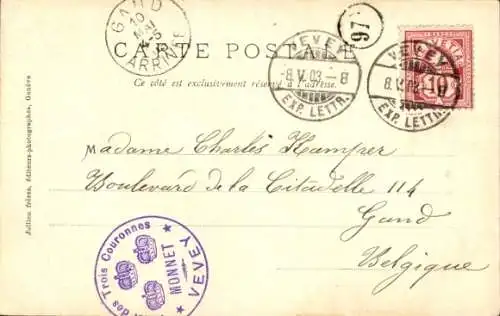 GAND
10
MAI
ARRIVÉE
CARTE POSTALE
97
VEVEY
8.V.03-8
EXP. LETTR.
VEVEY
8.V.03-8
EXP. LETTR.
10
Ce côté est exclusivement réservé à l'adresse.
Madame Charles Kamper
Boulevard de la Citadelle 114
Gand
Belgique
Jullien frères, éditeurs-photographes, Genève
Trois Couronnes
MONNET
VEVEY
des